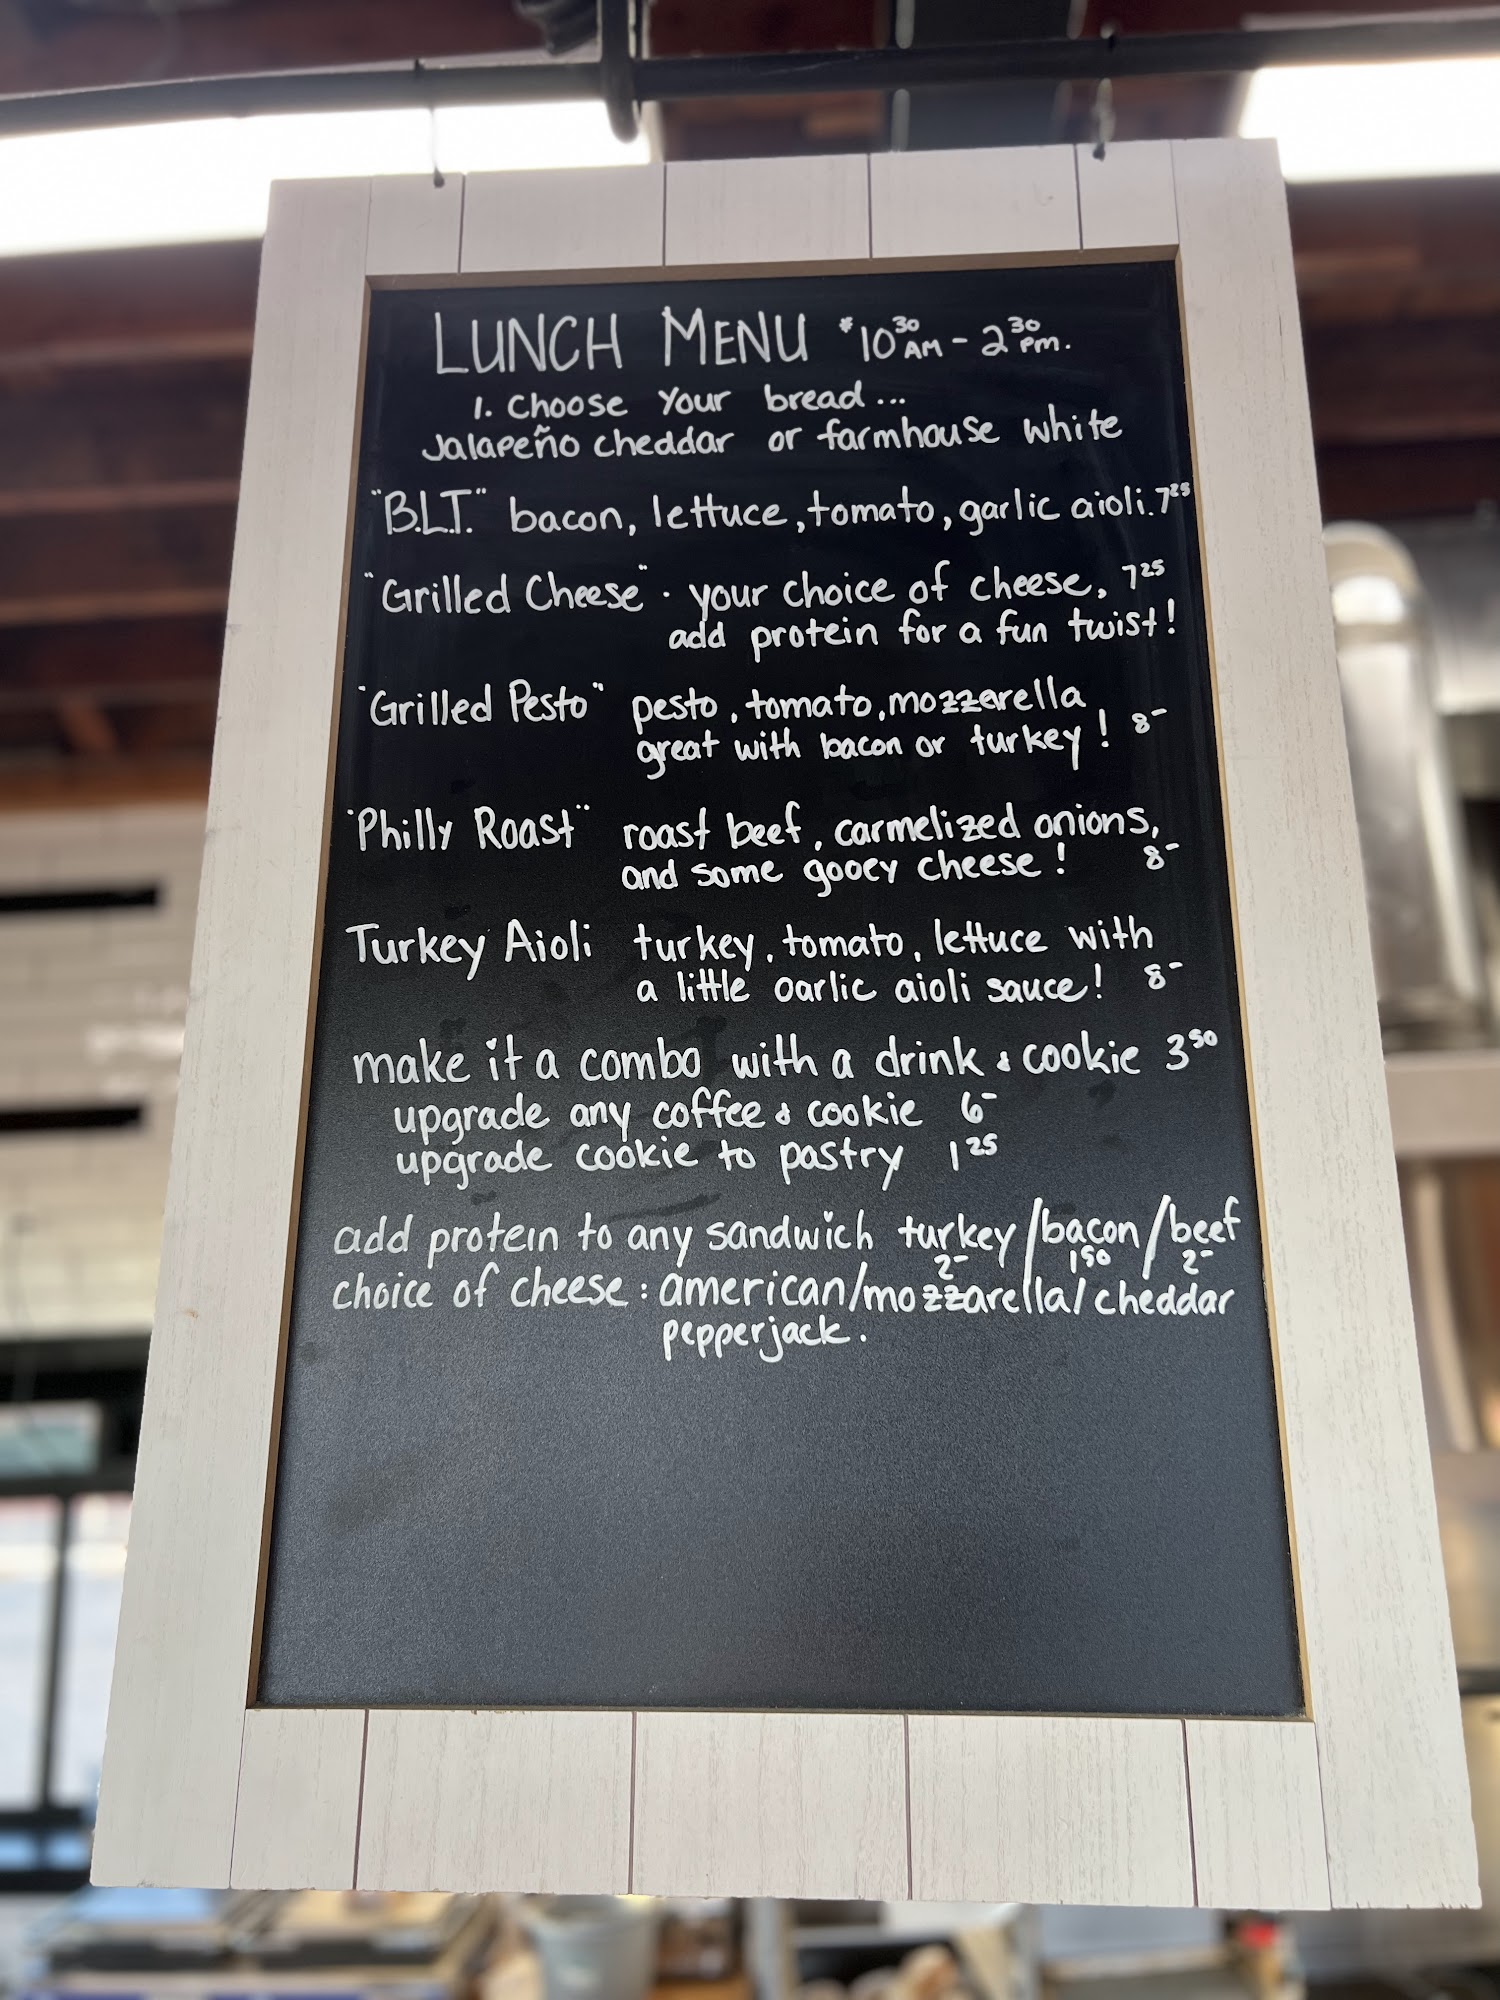 LUNCH MENU *10³⁰AM - 2³⁰PM.
1. Choose Your bread...
Jalapeño cheddar or farmhouse white
"B.L.T." bacon, lettuce, tomato, garlic aioli. 7²⁵
"Grilled Cheese" · your choice of cheese, 7²⁵
add protein for a fun twist!
"Grilled Pesto" pesto, tomato, mozzarella
great with bacon or turkey! 8-
"Philly Roast" roast beef, carmelized onions,
and some gooey cheese! 8-
Turkey Aioli turkey, tomato, lettuce with
a little oarlic aioli sauce! 8-
make it a combo with a drink & cookie 3⁵⁰
upgrade any coffee & cookie 6-
upgrade cookie to pastry 1²⁵
add protein to any sandwich turkey/bacon/beef
2- 1⁵⁰ 2-
choice of cheese: american/mozzarella/cheddar
pepperjack.